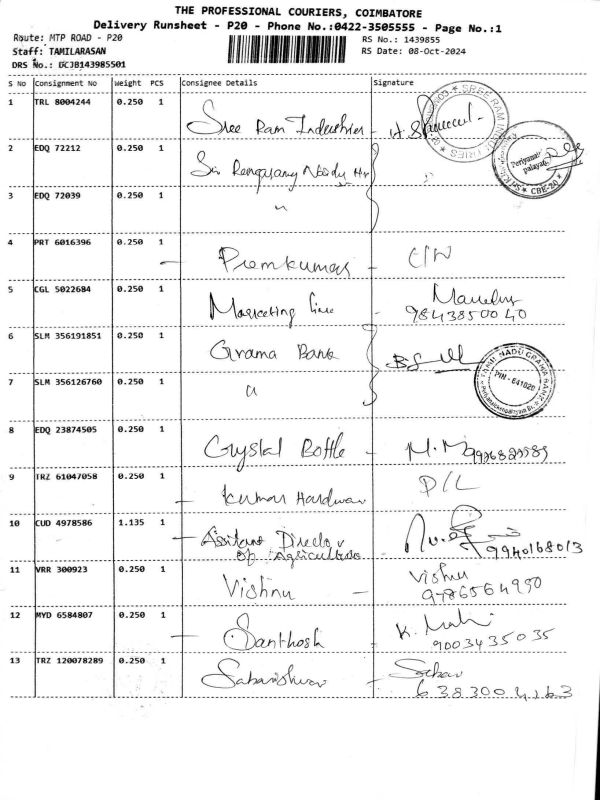 THE PROFESSIONAL COURIERS, COIMBATORE
Delivery Runsheet - P20 - Phone No.:0422-3505555 - Page No.:1
Route: MTP ROAD - P20
RS No.: 1439855
Staff: TAMILARASAN
RS Date: 08-Oct-2024
DRS No.: DCJB143985501
S No Consignment No Weight PCS Consignee Details Signature
1 TRL 8004244 0.250 1
Sree Ram Industries -
2 EDQ 72212 0.250 1
3 EDQ 72039 0.250 1
"
4 PRT 6016396 0.250 1
- Premkumar -
5 CGL 5022684 0.250 1
Marketing line
9843850040
6 SLM 356191851 0.250 1
Grama Bank
7 SLM 356126760 0.250 1
"
TAMIL NADU GRAMA BANK
PIN - 641020
8 EDQ 23874505 0.250 1
Crystal Bottle -
9 TRZ 61047058 0.250 1
- Kumar Hardwar
D/L
10 CUD 4978586 1.135 1
- Assitant Director
of Agriculture
9940168013
11 VRR 300923 0.250 1
Vishnu -
Vishnu
9786564950
12 MYD 6584807 0.250 1
- Santhosh
9003435035
13 TRZ 120078289 0.250 1
6383004163
SREE RAM INDUSTRIES
Periyanaicken
palayam
CBE-20